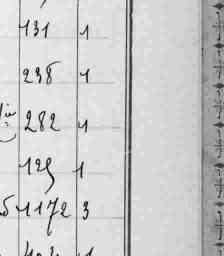 131 1
238 1
282 1
129 1
1172 3